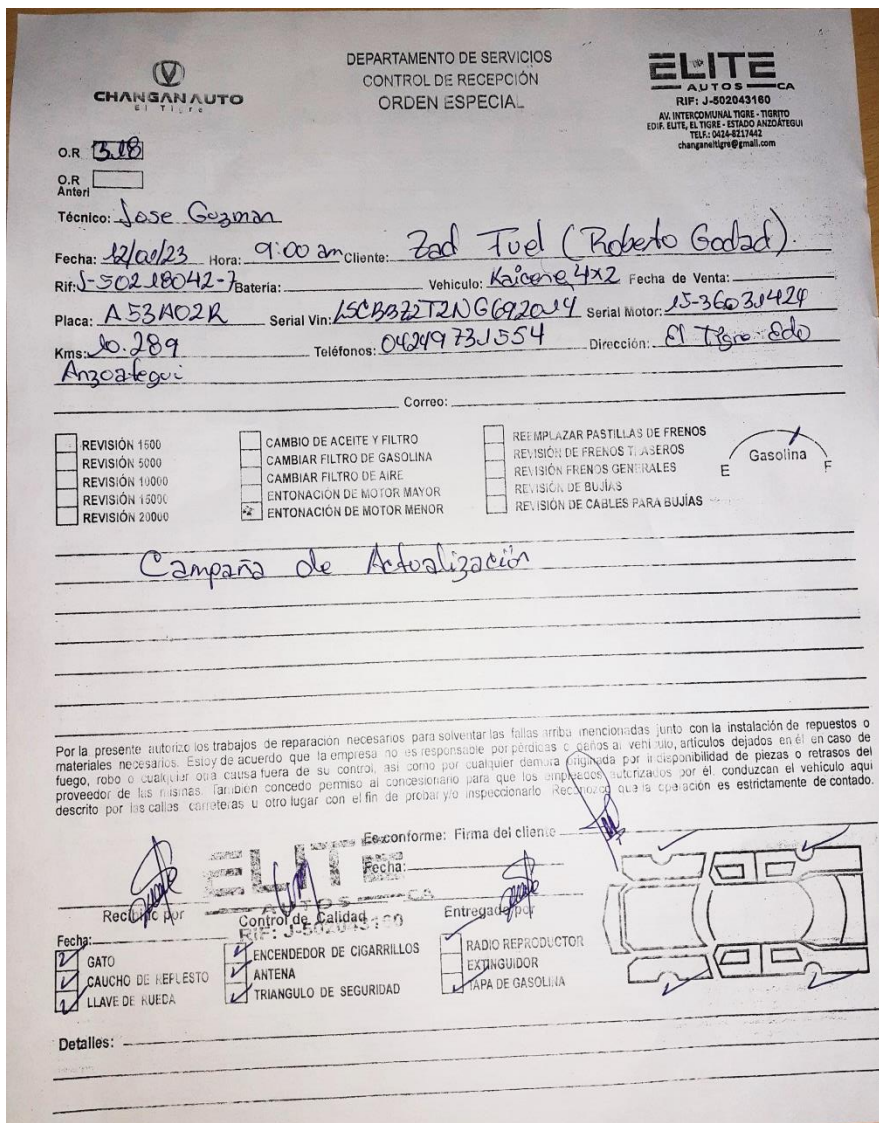 CHANGAN AUTO
El Tigre
DEPARTAMENTO DE SERVICIOS
CONTROL DE RECEPCIÓN
ORDEN ESPECIAL
ELITE
AUTOS CA
RIF: J-502043160
AV. INTERCOMUNAL TIGRE - TIGRITO
EDIF. ELITE, EL TIGRE - ESTADO ANZOÁTEGUI
TELF.: 0424-8217442
changaneltigre@gmail.com
O.R 318
O.R
Anteri
Técnico: Jose Guzman
Fecha: 12/01/23 Hora: 9:00 am Cliente: Zad Fuel (Roberto Godad).
Rif: J-50218042-7 Bateria: Vehiculo: Kaicene 4x2 Fecha de Venta:
Placa: A53A02R Serial Vin: LSCBBZ2T2NG692014 Serial Motor: 15-36031424
Kms: 10.289 Teléfonos: 04249731554 Dirección: El Tigre Edo
Anzoategui
Correo:
REVISIÓN 1500
REVISIÓN 5000
REVISIÓN 10000
REVISIÓN 15000
REVISIÓN 20000
CAMBIO DE ACEITE Y FILTRO
CAMBIAR FILTRO DE GASOLINA
CAMBIAR FILTRO DE AIRE
ENTONACIÓN DE MOTOR MAYOR
ENTONACIÓN DE MOTOR MENOR
REEMPLAZAR PASTILLAS DE FRENOS
REVISIÓN DE FRENOS TRASEROS
REVISIÓN FRENOS GENERALES
REVISIÓN DE BUJÍAS
REVISIÓN DE CABLES PARA BUJÍAS
E Gasolina F
Campaña de Actualización
Por la presente autorizo los trabajos de reparación necesarios para solventar las fallas arriba mencionadas junto con la instalación de repuestos o
materiales necesarios. Estoy de acuerdo que la empresa no es responsable por pérdidas o daños al vehículo, artículos dejados en él en caso de
fuego, robo o cualquier otra causa fuera de su control, así como por cualquier demora originada por indisponibilidad de piezas o retrasos del
proveedor de las mismas. Tambien concedo permiso al concesionario para que los empleados autorizados por él, conduzcan el vehículo aquí
descrito por las calles, carreteras u otro lugar con el fin de probar y/o inspeccionarlo. Reconozco que la operación es estrictamente de contado.
Es conforme: Firma del cliente
Fecha:
ELITE
AUTOS CA
RIF: J-502043160
Recibido por
Control de Calidad
Entregado por
Fecha:
GATO
CAUCHO DE REPUESTO
LLAVE DE RUEDA
ENCENDEDOR DE CIGARRILLOS
ANTENA
TRIANGULO DE SEGURIDAD
RADIO REPRODUCTOR
EXTINGUIDOR
TAPA DE GASOLINA
Detalles: